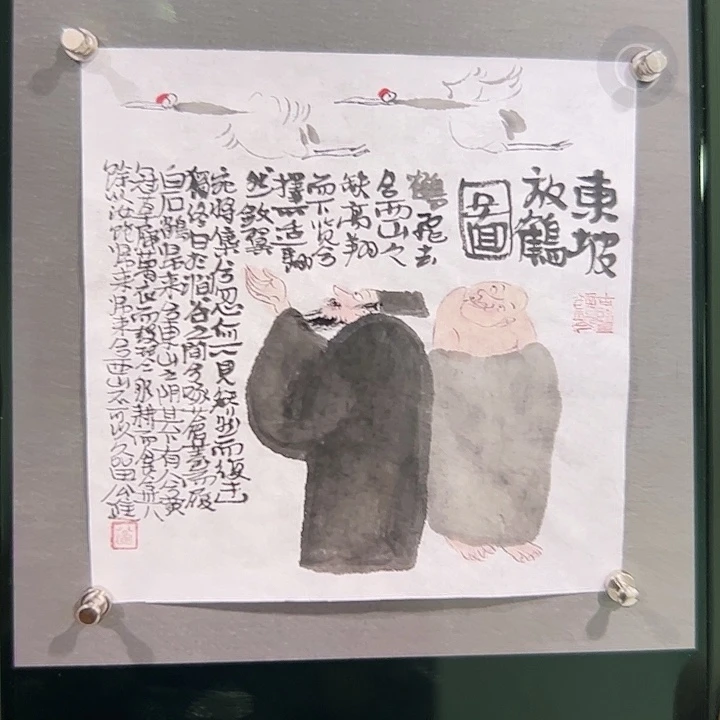 東坡
放鶴
圖
鶴飛去
兮西山之
缺高翔
而下览兮
擇所适翻
然敛翼
宛將集兮忽何所見矫然而復击
獨終日於澗谷之間兮啄苍苔而履
白石鶴归来兮東山之阴其下有人兮黄
冠草屨葛衣而鼓琴躬耕而食兮其
馀以汝飽归来归来兮西山不可以久留